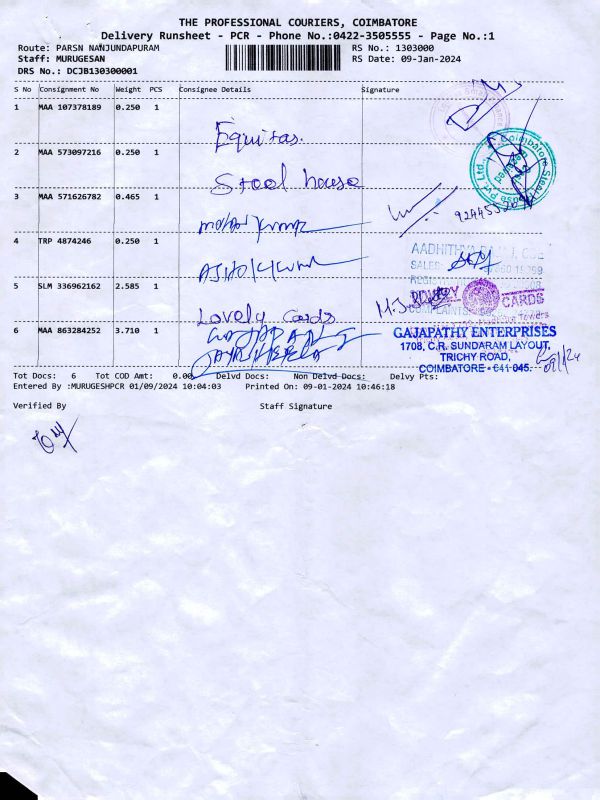 THE PROFESSIONAL COURIERS, COIMBATORE
Delivery Runsheet - PCR - Phone No.:0422-3505555 - Page No.:1
Route: PARSN NANJUNDAPURAM RS No.: 1303000
Staff: MURUGESAN RS Date: 09-Jan-2024
DRS No.: DCJB130300001
S No Consignment No Weight PCS Consignee Details Signature
1 MAA 107378189 0.250 1
Equitas.
2 MAA 573097216 0.250 1
Steel house
3 MAA 571626782 0.465 1
4 TRP 4874246 0.250 1
AADHITHYA
SALES
5 SLM 336962162 2.585 1
Lovely Cards
CARDS
6 MAA 863284252 3.710 1
GAJAPATHY ENTERPRISES
1708, C.R. SUNDARAM LAYOUT,
TRICHY ROAD,
COIMBATORE - 641 045.
Tot Docs: 6 Tot COD Amt: 0.00 Delvd Docs: Non Delvd Docs: Delvy Pts:
Entered By :MURUGESHPCR 01/09/2024 10:04:03 Printed On: 09-01-2024 10:46:18
Verified By Staff Signature